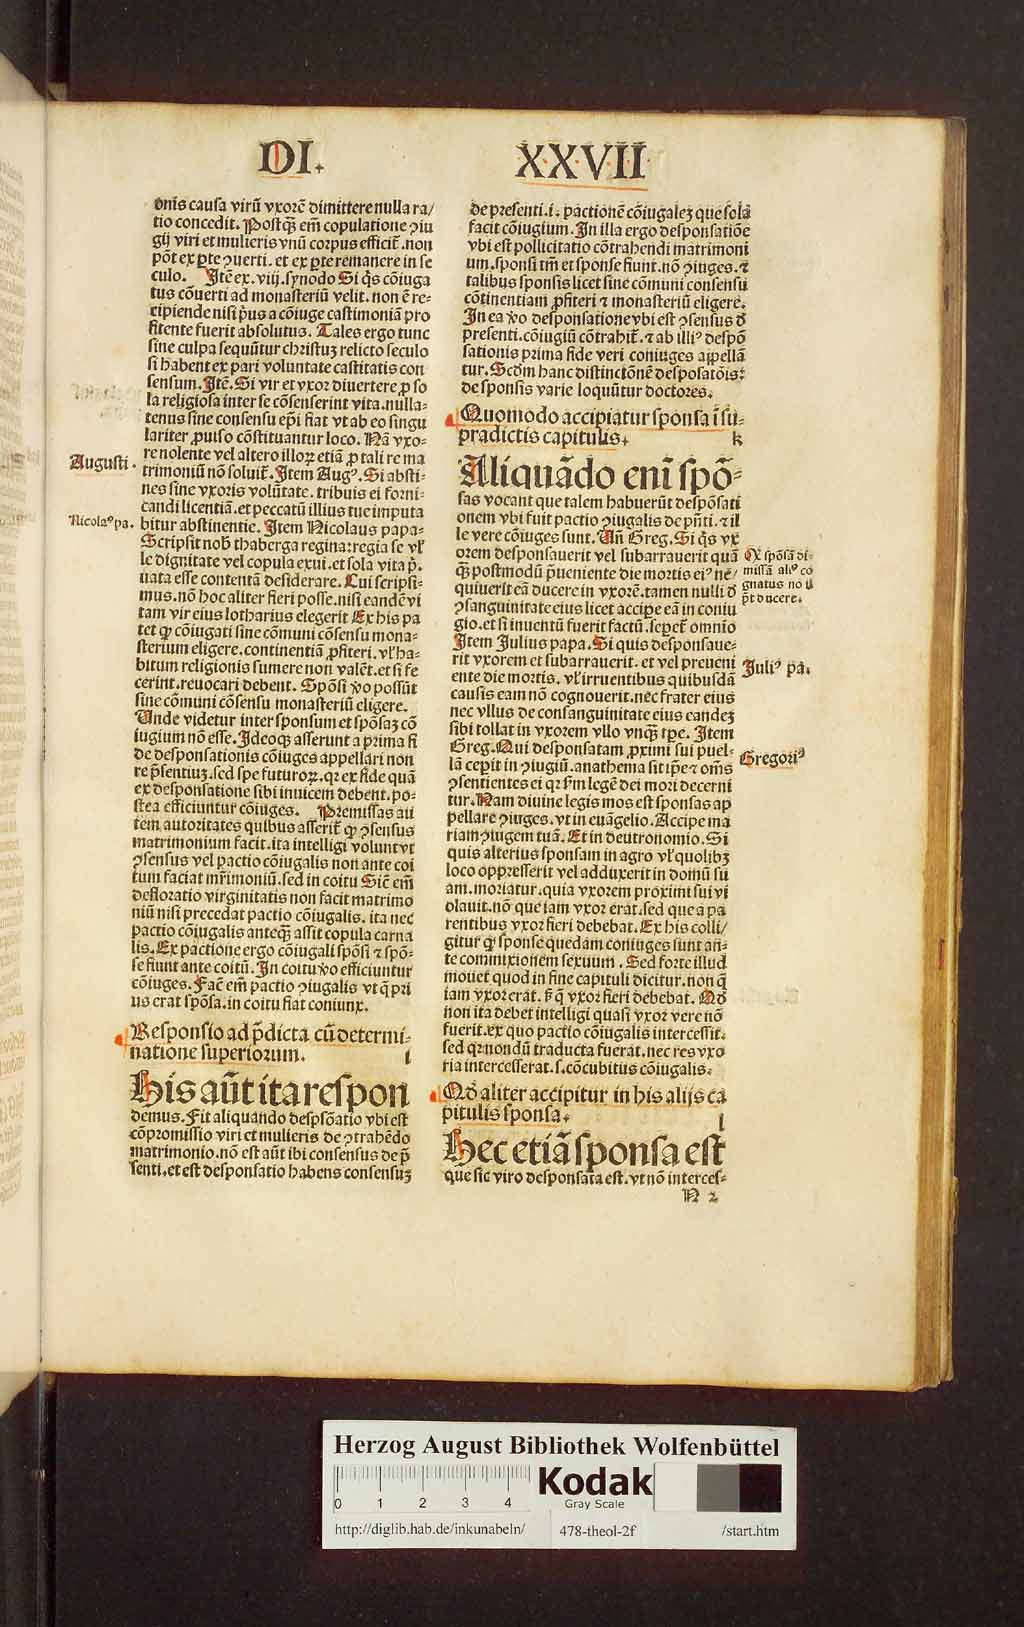 DI.
XXVII
onis causa virū vxorē dimittere nulla ra/
tio concedit. Postqȝ em̄ copulatione ꝯiu
gij viri et mulieris vnū corpus efficit̄. non
pōt ex ꝑte ꝯuerti. et ex ꝑte remanere in se
culo. Itē ex. viij. synodo Si q̄s cōiuga
tus cōuerti ad monasteriū velit. non ē re-
cipiende nisi p̄us a cōiuge castimoniā pro
fitente fuerit absolutus. Tales ergo tunc
sine culpa sequūtur christuȝ relicto seculo
si habent ex pari voluntate castitatis con
sensum. Itē. Si vir et vxor diuertere ꝓ so
la religiosa inter se cōsenserint vita. nulla-
tenus sine consensu ep̄i fiat vt ab eo singu
lariter ꝓuiso cōstituantur loco. Nā vxo-
re nolente vel altero illoꝝ etiā ꝓ tali re ma
trimoniū nō soluit̄. Item Augꝰ. Si absti-
nes sine vxoris volūtate. tribuis ei forni-
candi licentiā. et peccatū illius tue imputa
bitur abstinentie. Item Nicolaus papa-
Scripsit nob̄ thaberga regina: regia se vl̄
le dignitate vel copula exui. et sola vita p̄.
uata esse contentā desiderare. Cui scripsi-
mus. nō hoc aliter fieri posse. nisi eandē vi
tam vir eius lotharius elegerit Ex his pa
tet qꝫ cōiugati sine cōmuni cōsensu mona-
sterium eligere. continentiā ꝓfiteri. vl̄ ha-
bitum religionis sumere non valēt. et si fe
cerint. reuocari debent. Spōsi ꝟo possūt
sine cōmuni cōsensu monasteriū eligere.
Unde videtur inter sponsum et spōsaȝ cō
iugium nō esse. Ideoqȝ asserunt a prima fi
de desponsationis cōiuges appellari non
re p̄sentiuȝ. sed spe futuroꝝ. qꝛ ex fide quā
ex desponsatione sibi inuicem debent. po-
stea efficiuntur cōiuges. Premissas au
tem autoritates quibus asserit̄ qꝫ ꝯsensus
matrimonium facit. ita intelligi volunt vt
ꝯsensus vel pactio cōiugalis non ante coi
tum faciat mr̄imoniū. sed in coitu Sic̄ em̄
defloratio virginitatis non facit matrimo
niū nisi precedat pactio cōiugalis. ita nec
pactio cōiugalis anteqȝ assit copula carna
lis. Ex pactione ergo cōiugali spōsi ⁊ spō-
se fiunt ante coitū. In coitu ꝟo efficiuntur
cōiuges. Fac̄ em̄ pactio ꝯiugalis vt q̄ pri
us erat spōsa. in coitu fiat coniunx.
Responsio ad p̄dicta cū determi-
natione superiorum. i
His aūt ita respon
demus. Fit aliquando despsōatio vbi est
cōpromissio viri et mulieris de ꝯtrahēdo
matrimonio. nō est aūt ibi consensus de p̄
senti. et est desponsatio habens consensuȝ
Augusti.
Nicolaꝰ pa.
de presenti. i. pactionē cōiugaleȝ que sola
facit cōiugium. In illa ergo desponsatiōe
vbi est pollicitatio cōtrahendi matrimoni
um. sponsi tm̄ et sponse fiunt. nō ꝯiuges. ⁊
talibus sponsis licet sine cōmuni consensu
cōtinentiam ꝓfiteri ⁊ monasteriū eligere.
In ea ꝟo desponsatione vbi est ꝯsensus d̄
presenti. cōiugiū cōtrahit̄. ⁊ ab illiꝰ despō
sationis prima fide veri coniuges appellā
tur. Scd̄m hanc distinctōnē desposatōis:
de sponsis varie loquūtur doctores.
Quomodo accipiatur sponsa ī su-
pradictis capitulis. k
Aliquādo eni̅ spō-
sas vocant que talem habuerūt despōsati
onem vbi fuit pactio ꝯiugalis de pn̄ti. ⁊ il
le vere cōiuges sunt. Un̄ Greg. Si q̄s vx
orem desponsauerit vel subarrauerit quā
qȝ postmodū p̄ueniente die mortis eiꝰ ne/
quiuerit eā ducere in vxorē. tamen nulli d̄
ꝯsanguinitate eius licet accipe eā in coniu
gio. et si inuentū fuerit factū. sepet̄ omnīo
Item Julius papa. Si quis desponsaue-
rit vxorem et subarrauerit. et vel preueni
ente die mortis. vl̄ irruentibus quibusdā
causis eam nō cognouerit. nec frater eius
nec vllus de consanguinitate eius eandeȝ
sibi tollat in vxorem vllo vnqȝ tp̄e. Item
Greg. Qui desponsatam ꝓximi sui puel-
lā ceꝑit in ꝯiugiū. anathema sit ip̄e ⁊ om̄s
ꝯsentientes ei qꝛ ẜm legē dei mori decerni
tur. Nam diuine legis mos est sponsas ap
pellare ꝯiuges. vt in euāgelio. Accipe ma
riam ꝯiugem tuā. Et in deutronomio. Si
quis alterius sponsam in agro vl̄ quolibȝ
loco oppresserit vel adduxerit in domū su
am. moriatur. quia vxorem proximi sui vi
olauit. nō que iam vxor erat. sed que a pa
rentibus vxor fieri debebat. Ex his colli/
gitur qꝫ sponse quedam coniuges sunt an̄-
te commixtionem sexuum. Sed forte illud
mouet quod in fine capituli dicitur. non q̄
iam vxor erat. ẜ q̄ vxor fieri debebat. Qd̄
non ita debet intelligi quasi vxor vere nō
fuerit. ex quo pactio cōiugalis intercessit.
sed qꝛ nondū traducta fuerat. nec res vxo
ria intercesserat. s. cōcubitus cōiugalis.
Qd̄ aliter accipitur in his alijs ca
pitulis sponsa. l
Hec etiā sponsa est
que sic viro desponsata est. vt nō interces-
N 2
Qꝫ spōsā di-
missā aliꝰ co
gnatus nō
p̄t ducere.
Juliꝰ pā.
Gregoriꝰ
Herzog August Bibliothek Wolfenbüttel
0 1 2 3 4
Kodak
Gray Scale
http://diglib.hab.de/inkunabeln/ 478-theol-2f /start.htm